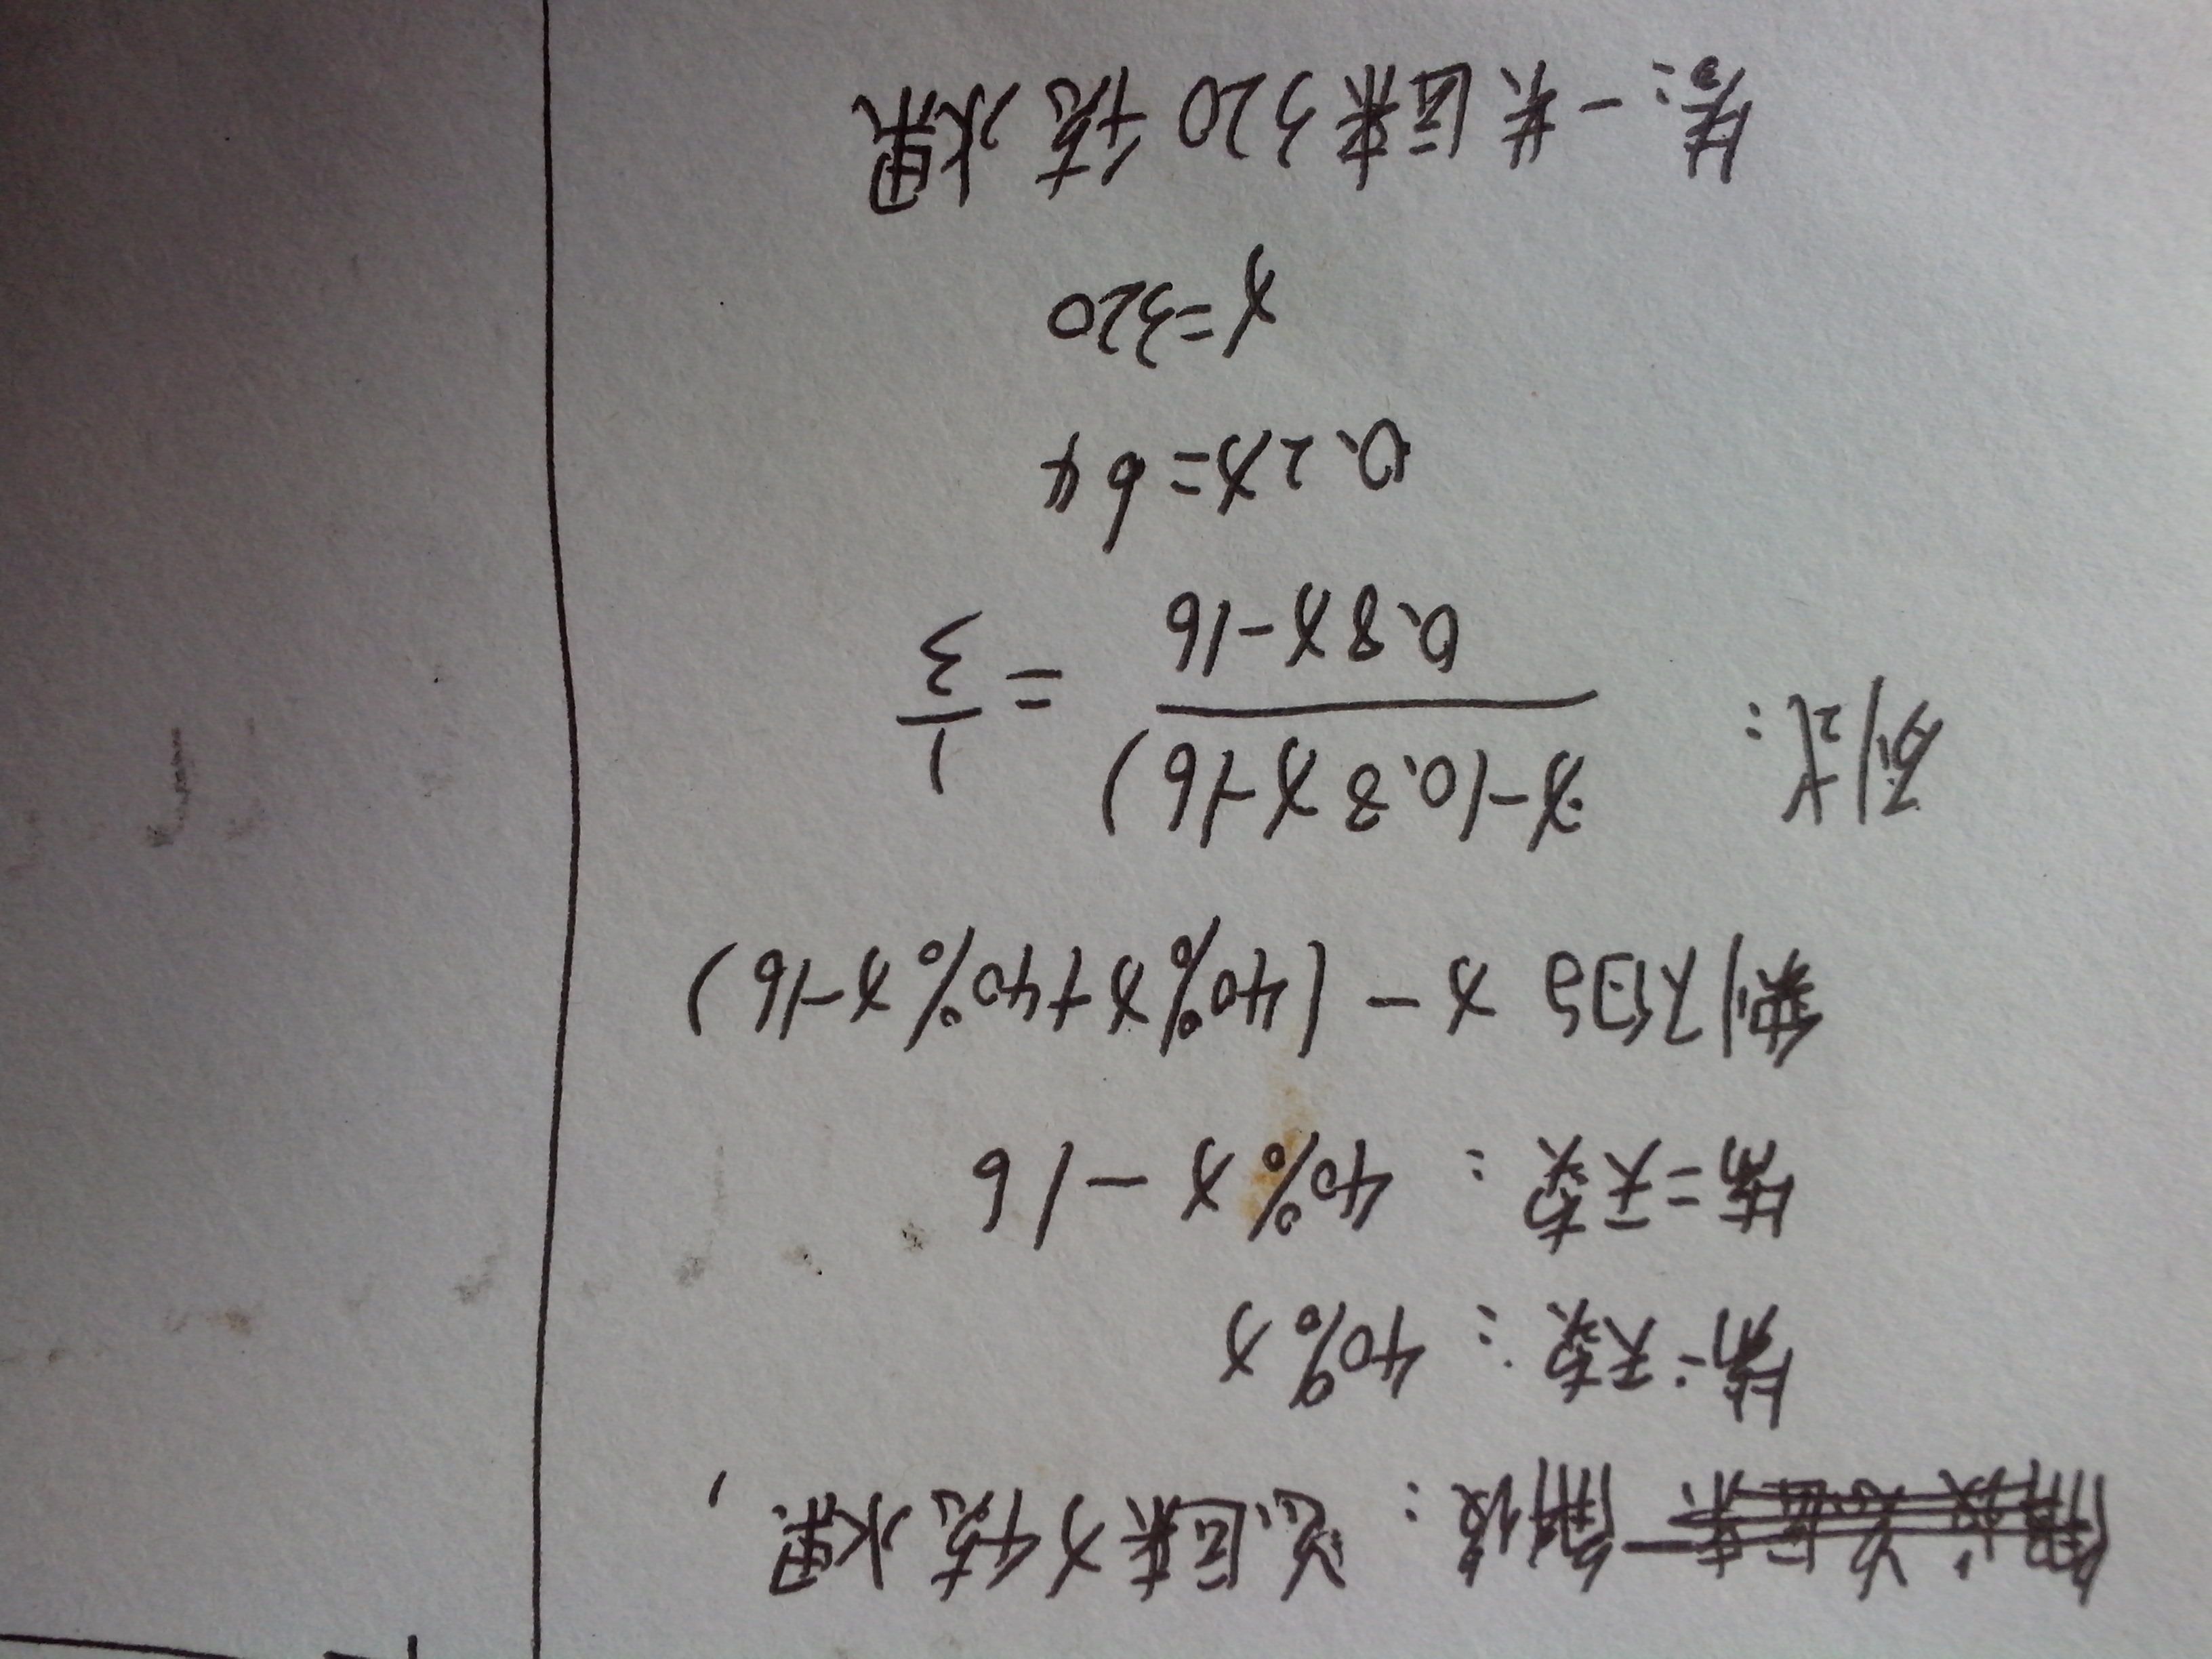 解设：总运来x千克水果，
第一天卖：40%x
第二天卖：40%x-16
剩下的 x-(40%x+40%x-16)
列式：
x-(0.8x-16)
0.8x-16
=
1
3
0.2x=64
x=320
答：一共运来320千克水果